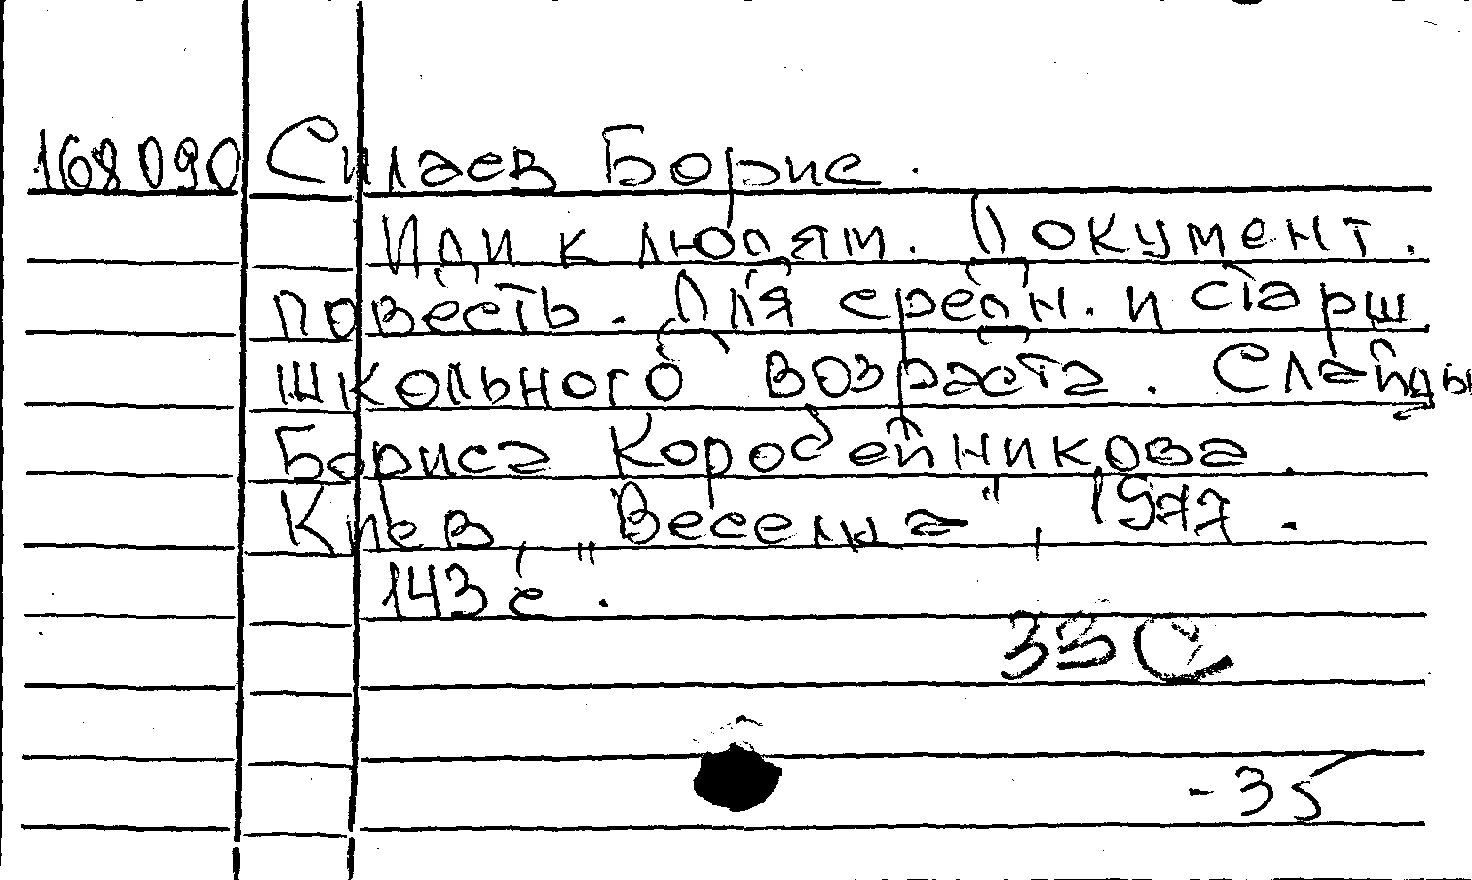 168090 Силаев Борис.
Иди к людям. Документ.
повесть. Для средн. и старш
школьного возраста. Слайды
Бориса Коробейникова.
Киев, "Веселка", 1977.
143 с.
33 С
-35